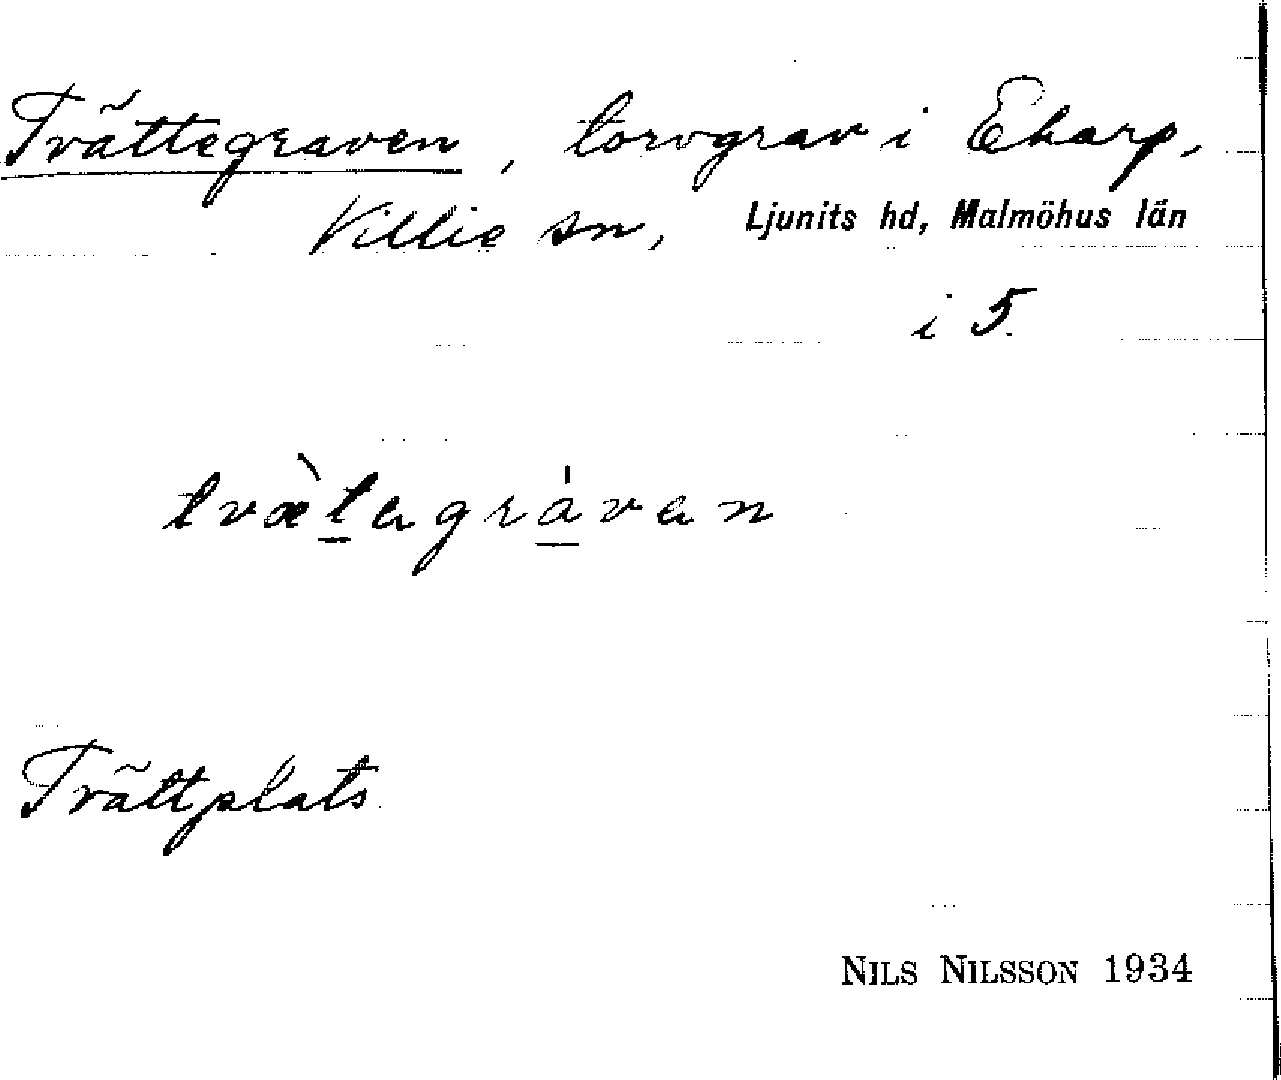 Tvättegraven, torvgrav i Ekarp,
Villie sn, Ljunits hd, Malmöhus län
i 5.
tvæ̀tagrávan
Tvättplats
NILS NILSSON 1934